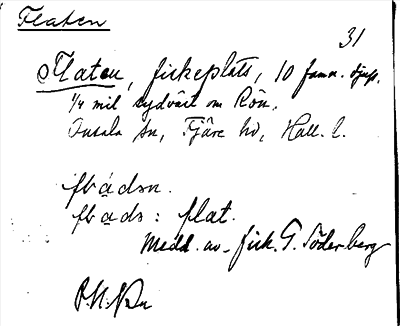 Flaten
31
Flaten, fiskeplats, 10 famn. djup,
1/4 mil sydväst om Rön.
Onsala sn, Fjäre hd, Hall. l.
flådsn.
flåds: flat.
Medd. av fisk. G. Söderberg